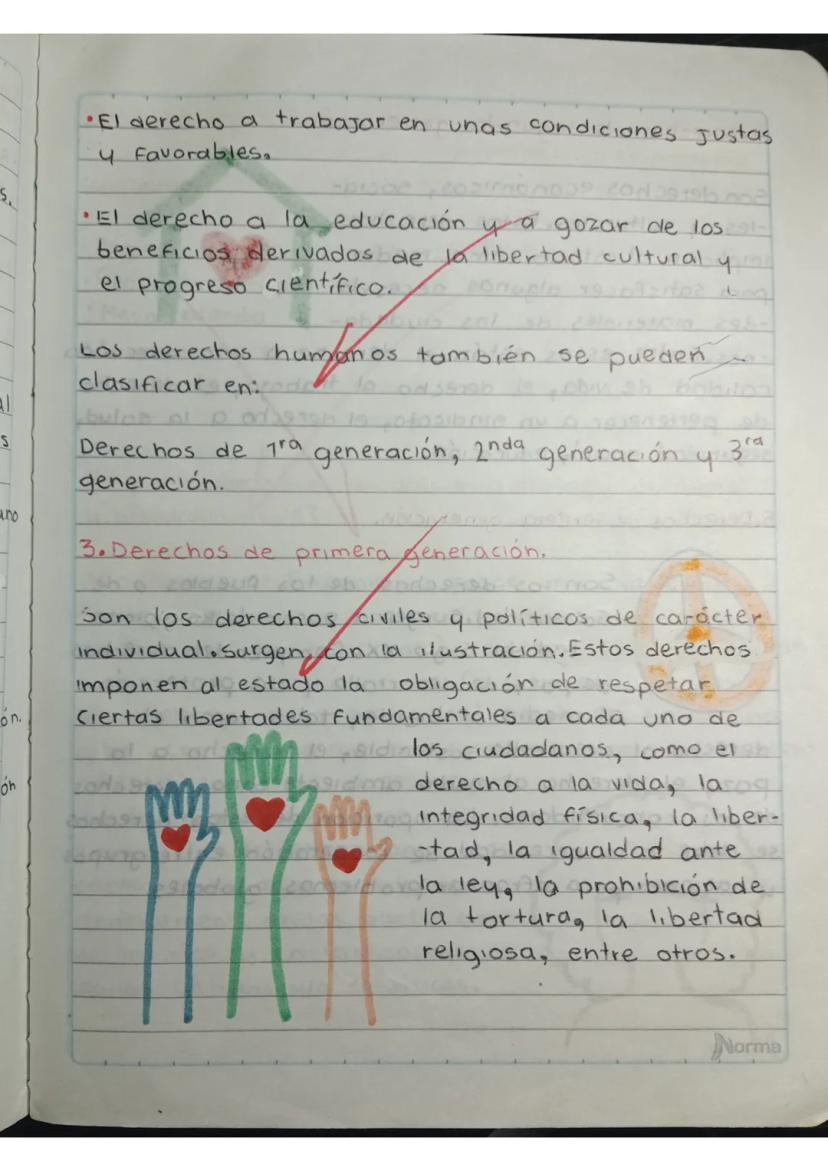 •El derecho a trabajar en unas condiciones justas
y favorables.
•El derecho a la educación y a gozar de los
beneficios derivados de la libertad cultural y
el progreso científico.
Los derechos humanos también se pueden
clasificar en:
Derechos de 1ra generación, 2nda generación y 3ra
generación.
3. Derechos de primera generación.
Son los derechos civiles y políticos de carácter
individual. surgen con la ilustración. Estos derechos
imponen al estado la obligación de respetar
ciertas libertades fundamentales a cada uno de
los ciudadanos, como el
derecho a la vida, la
integridad física, la liber-
-tad, la igualdad ante
la ley, la prohibición de
la tortura, la libertad
religiosa, entre otros.
Norma